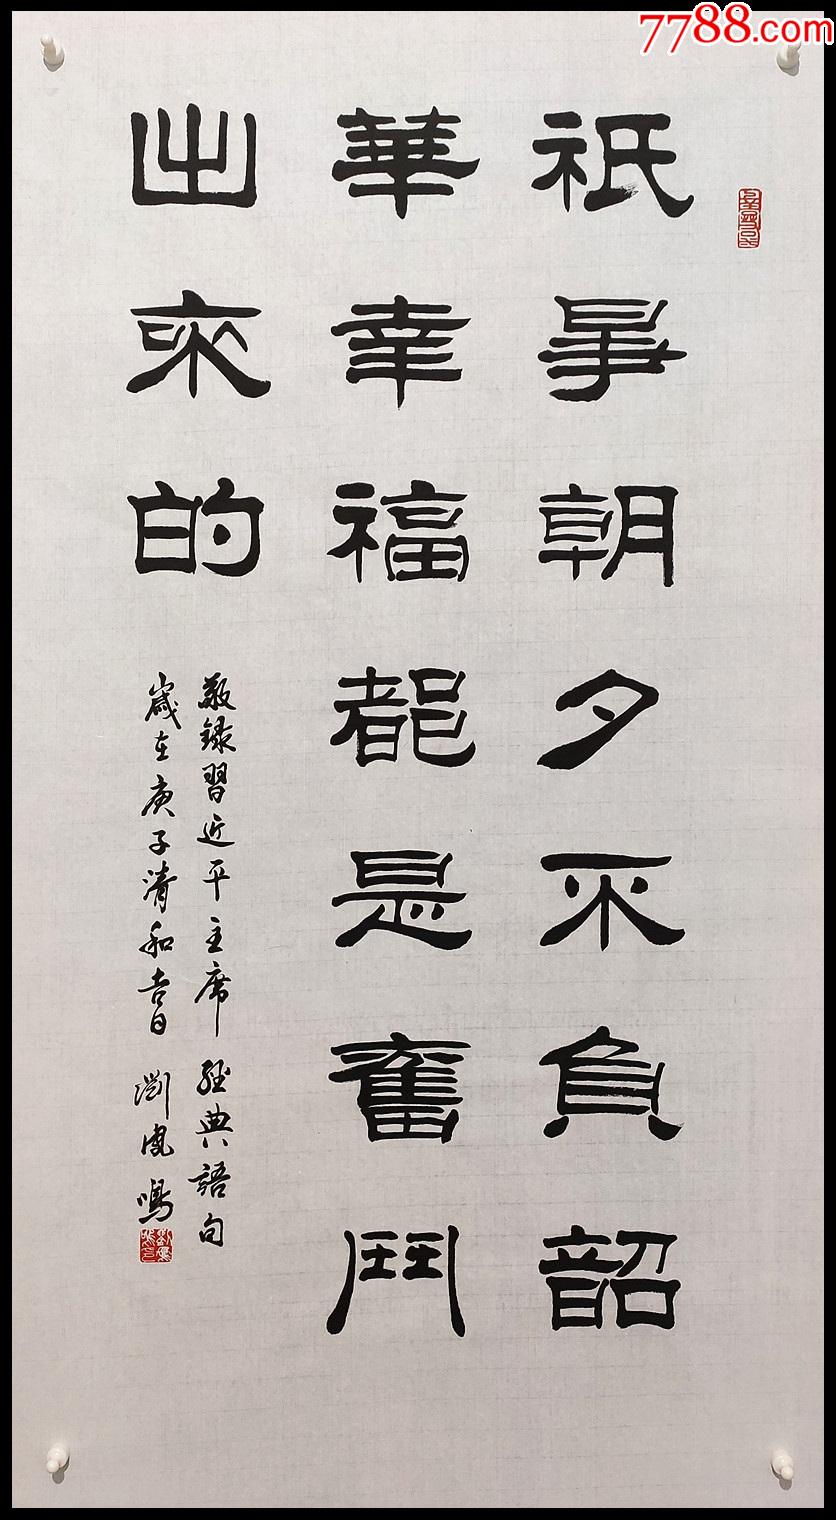 7788.com
祇爭朝夕不負韶
華幸福都是奮鬥
出來的
敬錄習近平主席經典語句
歲在庚子清和吉日劉鳳鳴